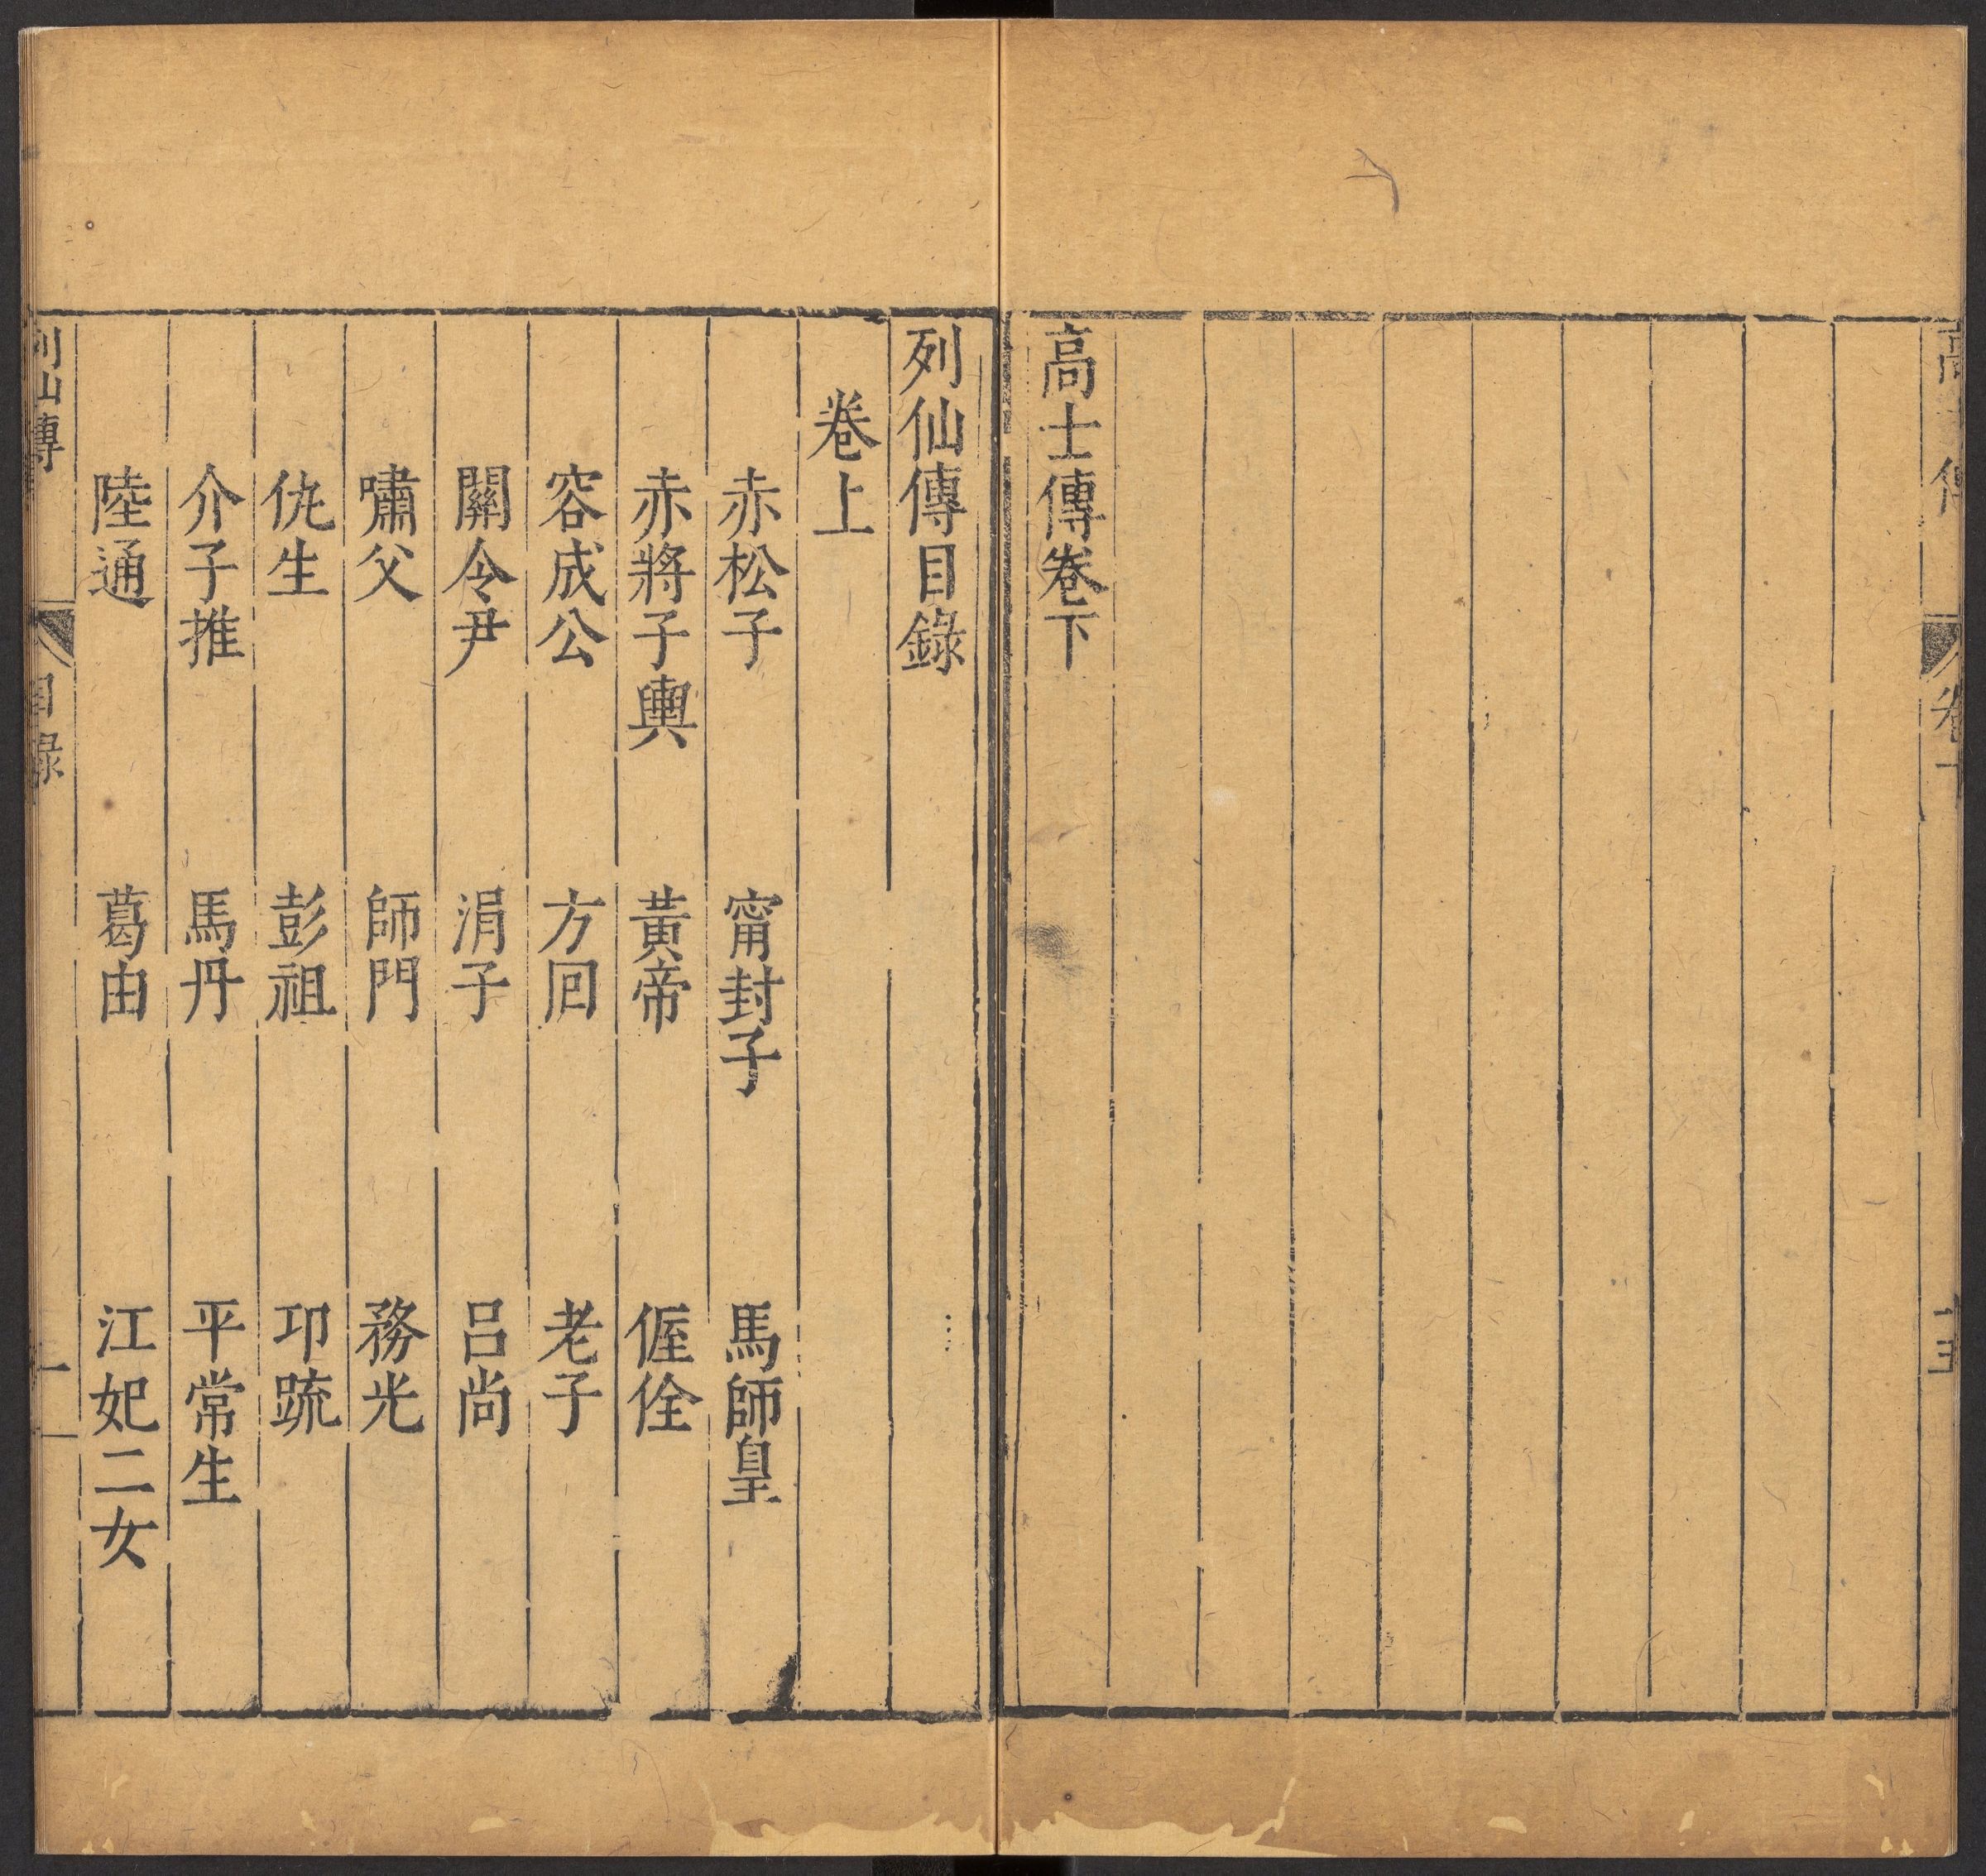 高士傳卷下
列仙傳目錄
卷上
赤松子 甯封子 馬師皇
赤將子輿 黃帝 偓佺
容成公 方回 老子
關令尹 涓子 呂尚
嘯父 師門 務光
仇生 彭祖 邛疏
介子推 馬丹 平常生
陸通 葛由 江妃二女
列仙傳 目錄 一